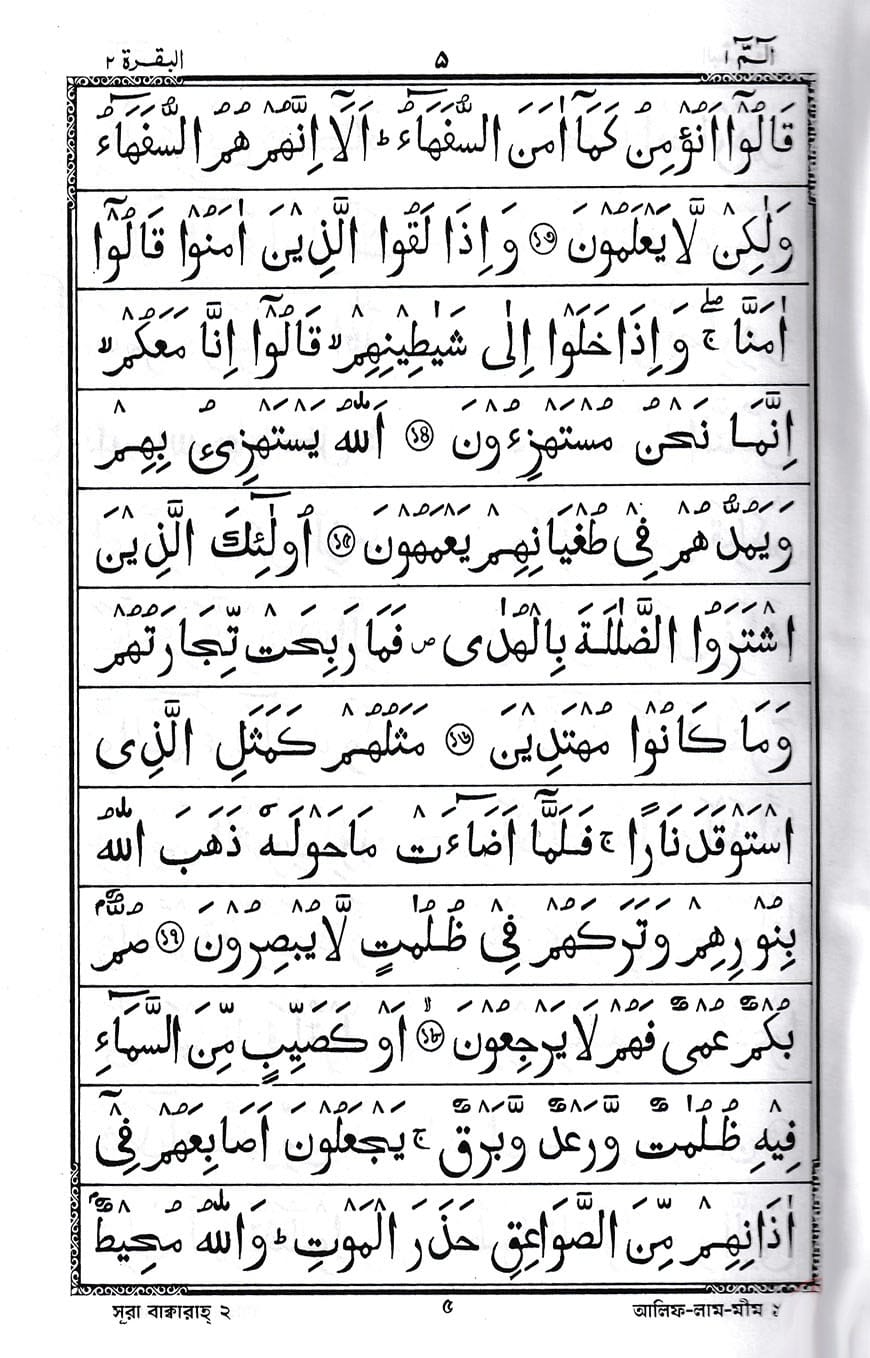 الٓمّٓ ١ ۵ البقرة ٢
قَالُوْٓا اَنُؤْمِنُ كَمَآ اٰمَنَ السُّفَهَآءُ ؕ اَلَآ اِنَّهُمْ هُمُ السُّفَهَآءُ
وَلٰكِنْ لَّا يَعْلَمُوْنَ ১৩ وَاِذَا لَقُوا الَّذِيْنَ اٰمَنُوْا قَالُوْٓا
اٰمَنَّا ۖۚ وَاِذَا خَلَوْا اِلٰى شَيٰطِيْنِهِمْ ۙ قَالُوْٓا اِنَّا مَعَكُمْ ۙ
اِنَّمَا نَحْنُ مُسْتَهْزِءُوْنَ ১৪ اَللّٰهُ يَسْتَهْزِئُ بِهِمْ
وَيَمُدُّهُمْ فِيْ طُغْيَانِهِمْ يَعْمَهُوْنَ ১৫ اُولٰٓئِكَ الَّذِيْنَ
اشْتَرَوُا الضَّلٰلَةَ بِالْهُدٰى ۪ فَمَا رَبِحَتْ تِّجَارَتُهُمْ
وَمَا كَانُوْا مُهْتَدِيْنَ ১৬ مَثَلُهُمْ كَمَثَلِ الَّذِى
اسْتَوْقَدَ نَارًا ۚ فَلَمَّآ اَضَآءَتْ مَاحَوْلَهٗ ذَهَبَ اللّٰهُ
بِنُوْرِهِمْ وَتَرَكَهُمْ فِيْ ظُلُمٰتٍ لَّا يُبْصِرُوْنَ ১৭ صُمٌّۢ
بُكْمٌ عُمْىٌ فَهُمْ لَا يَرْجِعُوْنَ ১৮ ۙ اَوْ كَصَيِّبٍ مِّنَ السَّمَآءِ
فِيْهِ ظُلُمٰتٌ وَّرَعْدٌ وَّبَرْقٌ ۚ يَجْعَلُوْنَ اَصَابِعَهُمْ فِيْٓ
اٰذَانِهِمْ مِّنَ الصَّوَاعِقِ حَذَرَ الْمَوْتِ ؕ وَاللّٰهُ مُحِيْطٌۢ
সূরা বাক্বারাহ্ ২ ৫ আলিফ-লাম-মীম ১